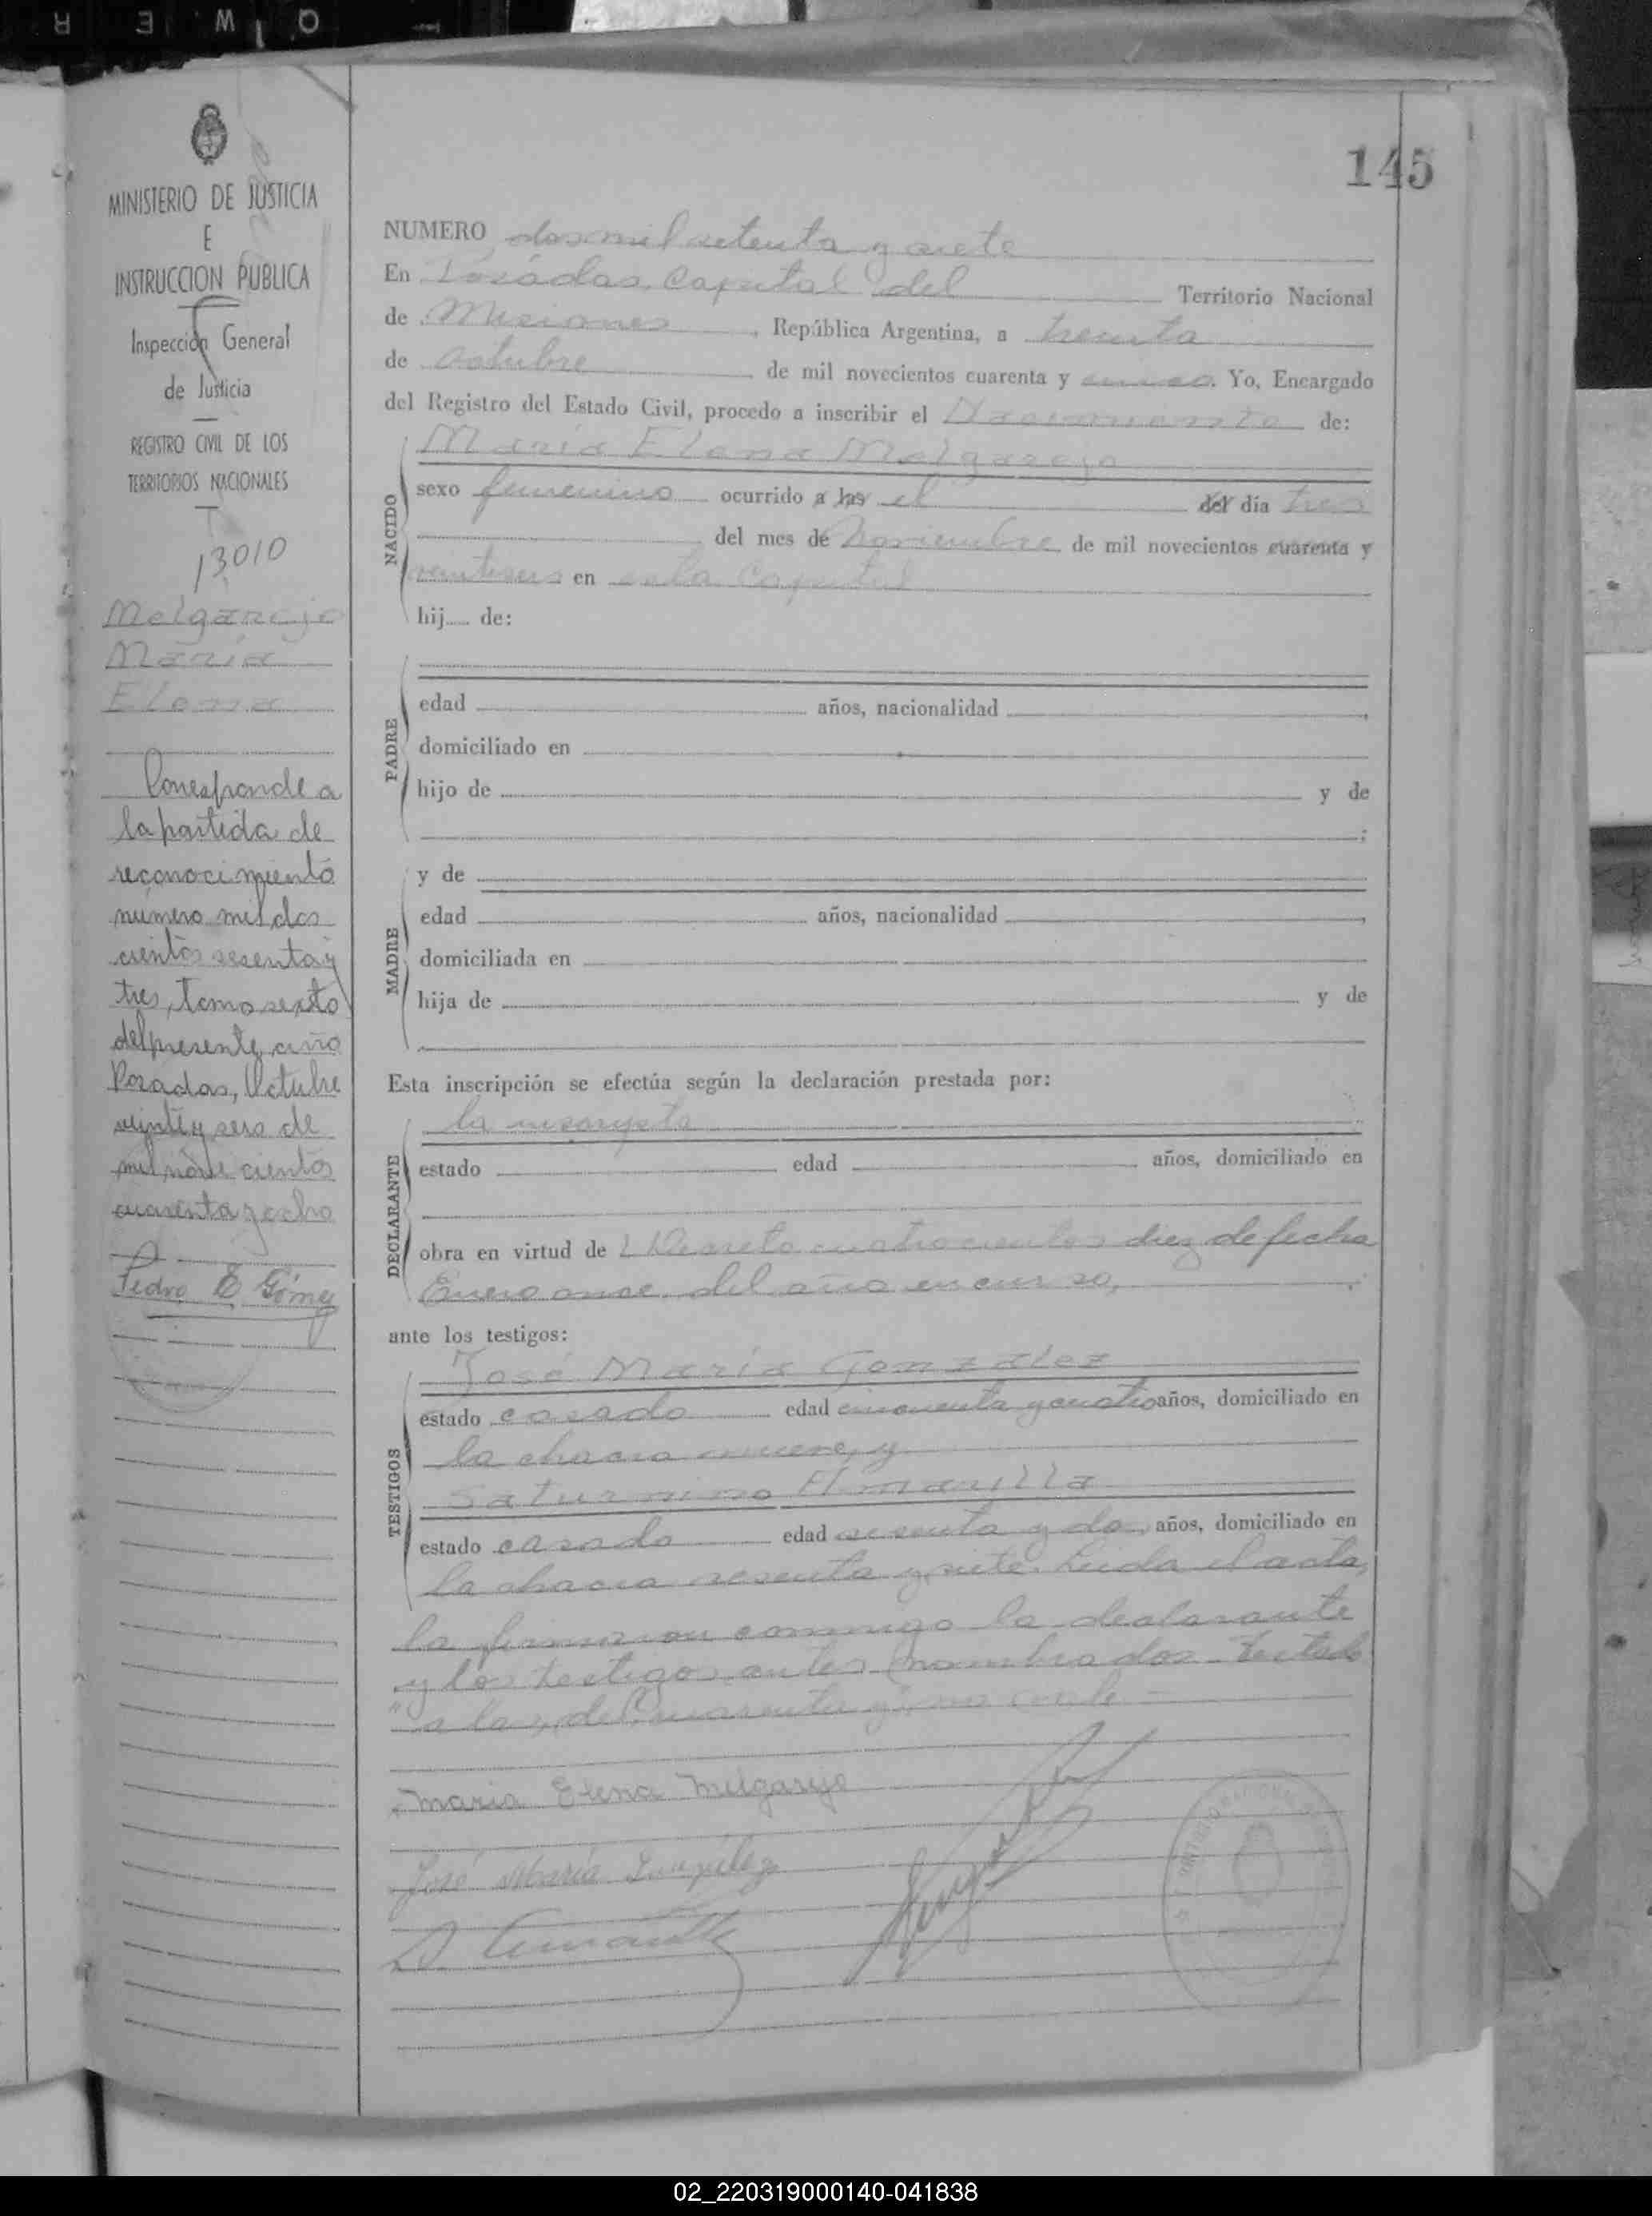 145
MINISTERIO DE JUSTICIA
E
INSTRUCCION PUBLICA
Inspección General
de Justicia
REGISTRO CIVIL DE LOS
TERRITORIOS NACIONALES
13010
Melgarejo
María
Elena
Corresponde a
la partida de
reconocimiento
número mil dos
cientos sesenta y
tres, tomo sexto
del presente año
Posadas, Octubre
veinte y seis de
mil nove cientos
cuarenta y ocho
Pedro E Gómez
NUMERO dos mil setenta y siete
En Posadas Capital del Territorio Nacional
de Misiones, República Argentina, a treinta
de octubre de mil novecientos cuarenta y cinco. Yo, Encargado
del Registro del Estado Civil, procedo a inscribir el Nacimiento de:
NACIDO
María Elena Melgarejo
sexo femenino ocurrido a las el del día tres
del mes de Noviembre de mil novecientos cuarenta y
veintiseis en esta Capital
hij de:
PADRE
edad años, nacionalidad
domiciliado en
hijo de y de
MADRE
y de
edad años, nacionalidad
domiciliada en
hija de y de
Esta inscripción se efectúa según la declaración prestada por:
DECLARANTE
la inscripta
estado edad años, domiciliado en
obra en virtud de l Decreto cuatrocientos diez de fecha
Enero once del año en curso,
ante los testigos:
TESTIGOS
José María Gonzalez
estado casado edad cincuenta y cuatro años, domiciliado en
la chacra nueve, y
Saturnino
estado casado edad sesenta y dos años, domiciliado en
la chacra sesenta y siete. Leida el acta,
la firmaron conmigo la declarante
y los testigos antes nombrados. Testado
"a las, del, cuarenta y", no vale.-
Maria Elena Melgarejo
José María González
02_220319000140-041838